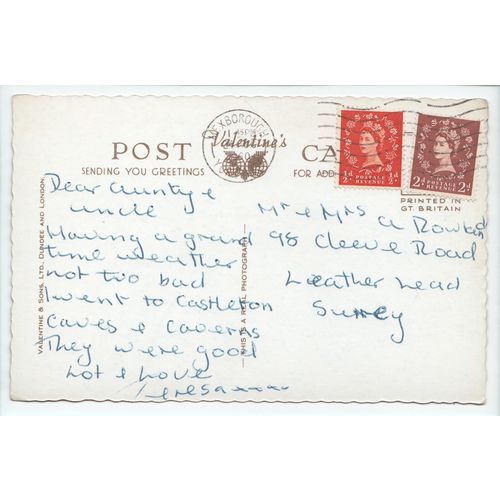 POST CA
Valentine's
SENDING YOU GREETINGS FOR ADD
MEXBOROUGH
SEP
60
½d POSTAGE REVENUE ½d
2d POSTAGE REVENUE 2d
PRINTED IN
GT. BRITAIN
VALENTINE & SONS, LTD., DUNDEE AND LONDON.
THIS IS A REAL PHOTOGRAPH
Dear Aunty &
uncle
Having a grand
time weather
not too bad
I went to Castleton
caves & caverns
They were good
Lot & Love
Teresa xxxx
Mr & Mrs A
98 Cleeve Road
Leather head
Surrey